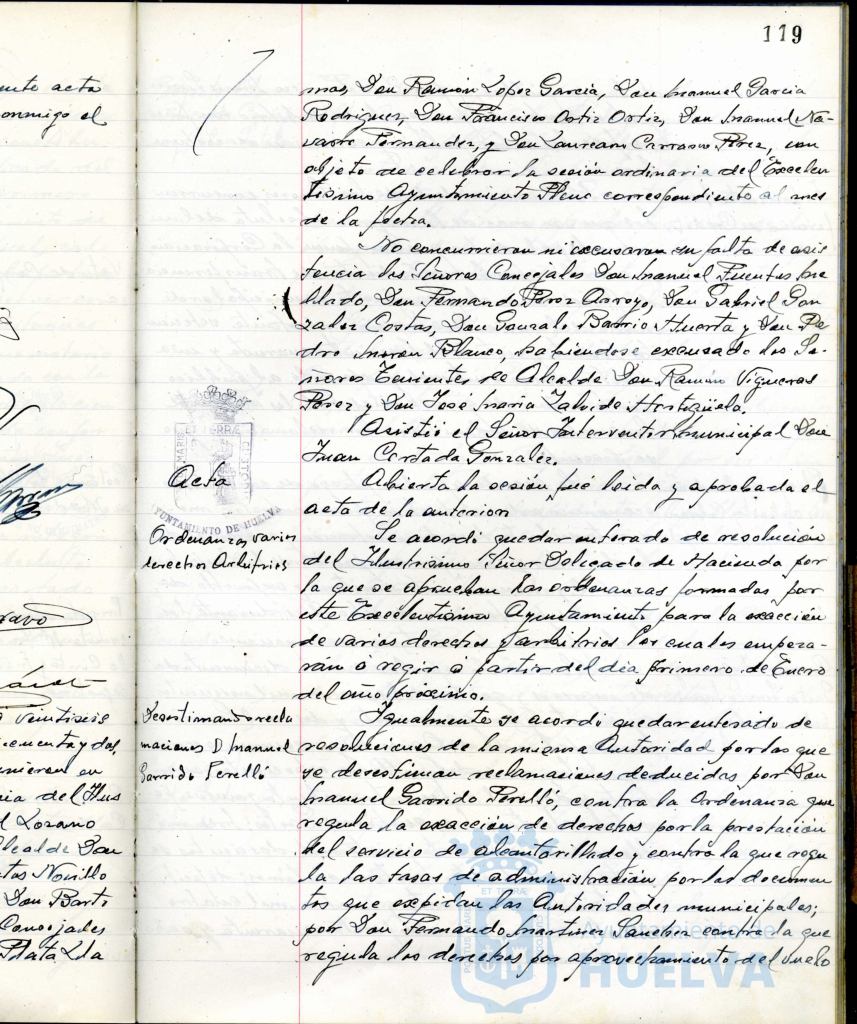 119
nte acta
onmigo el
mas, Don Ramón Lopez Garcia, Don Manuel Garcia
Rodriguez, Don Francisco Ortiz Ortiz, Don Manuel Na-
varro Fernandez, y Don Laureano Carrasco Perez, con
objeto de celebrar la sesión ordinaria del Excelen
tisimo Ayuntamiento Pleno correspondiente al mes
de la fecha.
No concurrieron ni excusaron su falta de asis
tencia los Señores Concejales Don Manuel Fuentes
Don Fernando Perez Arroyo, Don Gabriel Gon
zalez Costas, Don Gonzalo Barrio Huerta y Don Pe
dro Morón Blanco, habiendose excusado los Se-
ñores Tenientes de Alcalde Don Ramón Vigueras
Perez y Don José Maria Zalvide Hortigüela.
Asistió el Señor Interventor municipal Don
Juan Cortada Gonzalez.
MARIS ET TERRAE CUSTODI
Acta
Abierta la sesión fué leida y aprobada el
acta de la anterior
YUNTAMIENTO DE HUELVA
Ordenanzas varios
derechos Arbitrios
Se acordó quedar enterado de resolución
del Ilustrisimo Señor Delegado de Hacienda por
la que se aprueban las ordenanzas formadas por
este Excelentisimo Ayuntamiento para la exacción
de varios derechos y arbitrios los cuales empeza-
rán á regir á partir del dia primero de Enero
del año próximo.
Desestimando recla
maciones D Manuel
Garrido Perelló
Igualmente se acordó quedar enterado de
resoluciones de la misma Autoridad por las que
se desestiman reclamaciones deducidas por Don
Manuel Garrido Perelló, contra la Ordenanza que
regula la exacción de derechos por la prestación
del servicio de alcantarillado y contra la que regu
la las tasas de administración por los documen
tos que expidan las Autoridades municipales;
por Don Fernando Martinez Sanchez contra la que
regula los derechos por aprovechamiento del vuelo
ravo
veintiseis
cuenta y dos,
unieron en
cia del Ilus
l Lozano
lcalde Don
tos Novillo
Don Barto
Concejales
Plata Lda
Ayuntamiento de
HUELVA